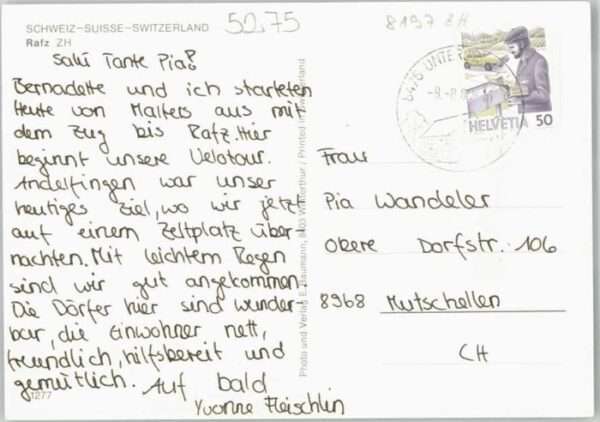 SCHWEIZ-SUISSE-SWITZERLAND
Rafz ZH
5275
8197 ZH
Sali Tante Pia!
Bernadette und ich starteten
Heute von Malters aus mit
dem Zug bis Rafz. Hier
beginnt unsere Velotour.
Andelfingen war unser
heutiges Ziel, wo wir jetzt
auf einem Zeltplatz über-
nachten. Mit leichtem Regen
sind wir gut angekommen.
Die Dörfer hier sind wunder-
bar, die Einwohner nett,
freundlich, hilfsbereit und
gemütlich. Auf bald
Yvonne Fleischlin
1277
Photo und Verlag E. Baumann, 8403 Winterthur / Printed in Switzerland
HELVETIA 50
Frau
Pia Wandeler
Obere Dorfstr. 106
8968 Mutschellen
CH